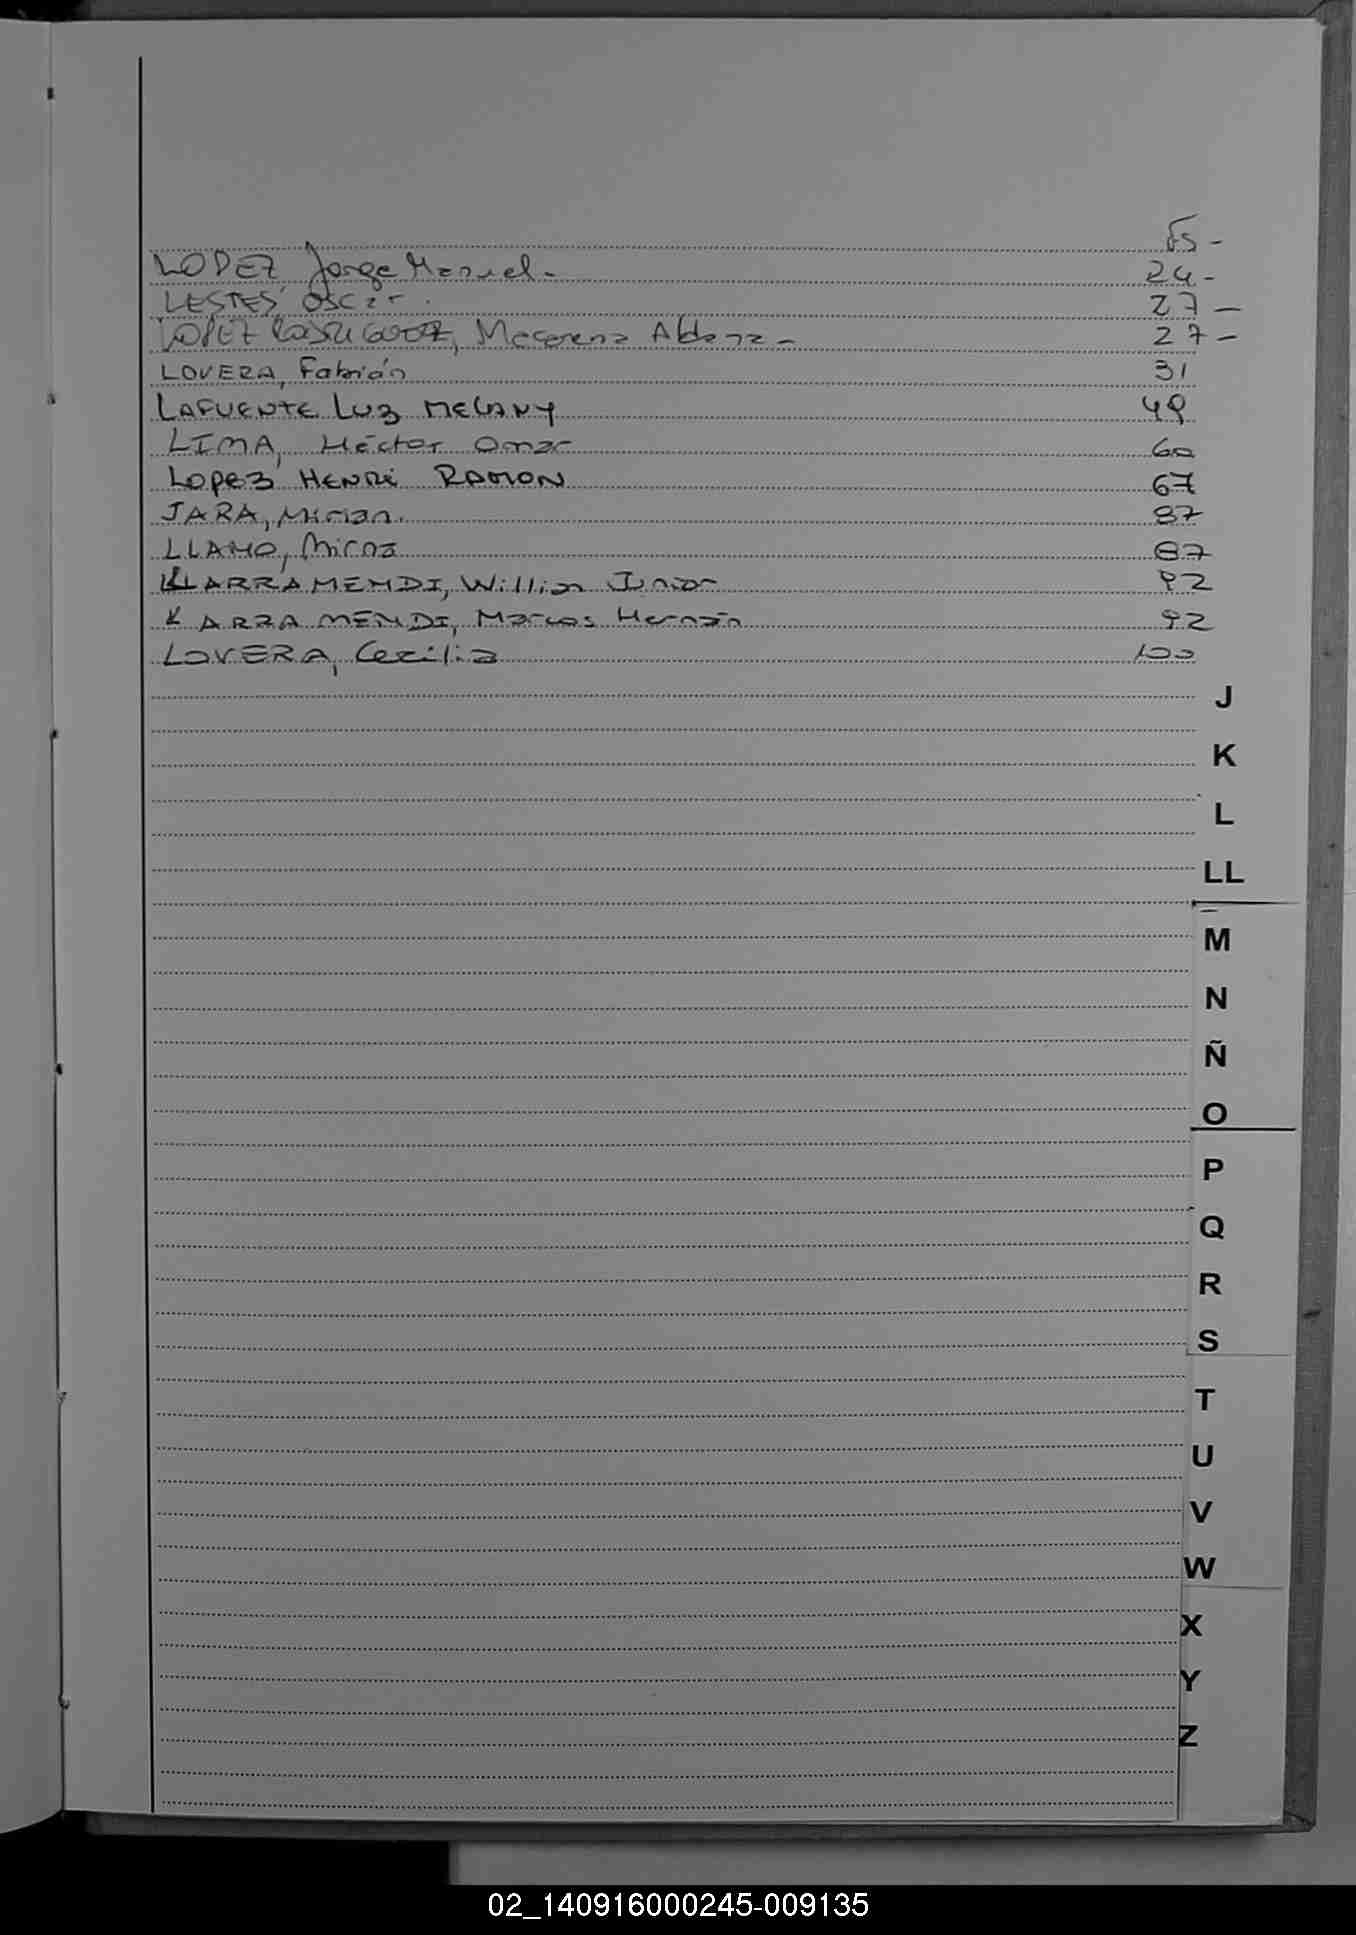 FS -
LOPEZ Jorge Manuel - 24 -
LESTES, Oscar . 27 -
LOPEZ RODRIGUEZ, Macarena Aldana - 27 -
LOVERA, Fabián 31
LAFUENTE LUZ MELANY 49
LIMA, Héctor Omar 60
Lopez HENRi RAMON 67
JARA, Mirian. 87
LLAMO, Mirna 87
LARRAMENDI, Willian Junior 92
LARRAMENDI, Marcos Hernán 92
LOVERA, Cecilia 100
J
K
L
LL
M
N
Ñ
O
P
Q
R
S
T
U
V
W
X
Y
Z
02_140916000245-009135